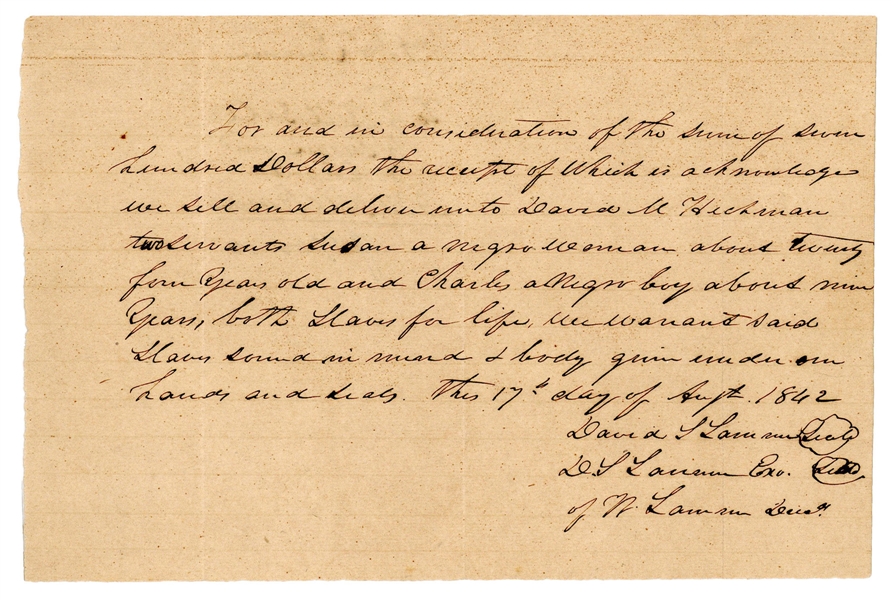 For and in consideration of the sum of seven
hundred Dollars the receipt of Which is acknowledge
we sell and deliver unto David M Hickman
two servants Susan a negro Woman about twenty
four Years old and Charles a Negro boy about nine
Years, both Slaves for life, We warrant said
Slaves sound in mind & body given under our
hands and seals. This 17th day of Augt. 1842
David S Lamme Seal
D. S Lamme Exo. Seal
of W. Lamme Decd.